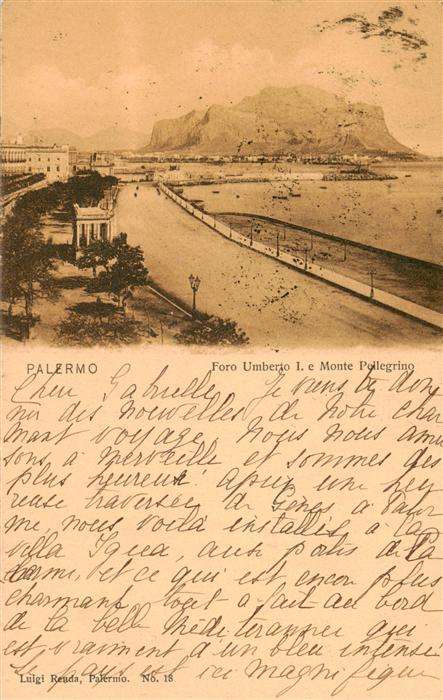 PALERMO
Foro Umberto I. e Monte Pellegrino
Cher Gabrielle Je viens te don
ner des nouvelles de notre char
mant voyage. Nous nous amu
sons à merveille et sommes des
plus heureux après une heu
reuse traversée de Gênes à Paler
me nous voilà installés à la
villa Igiea, aussi près de la
et ce qui est encore plus
charmant tout a fait au bord
de la belle Méditerranée qui
est vraiment d'un bleu intense
le pays est ici magnifique
Luigi Renda, Palermo. No. 18